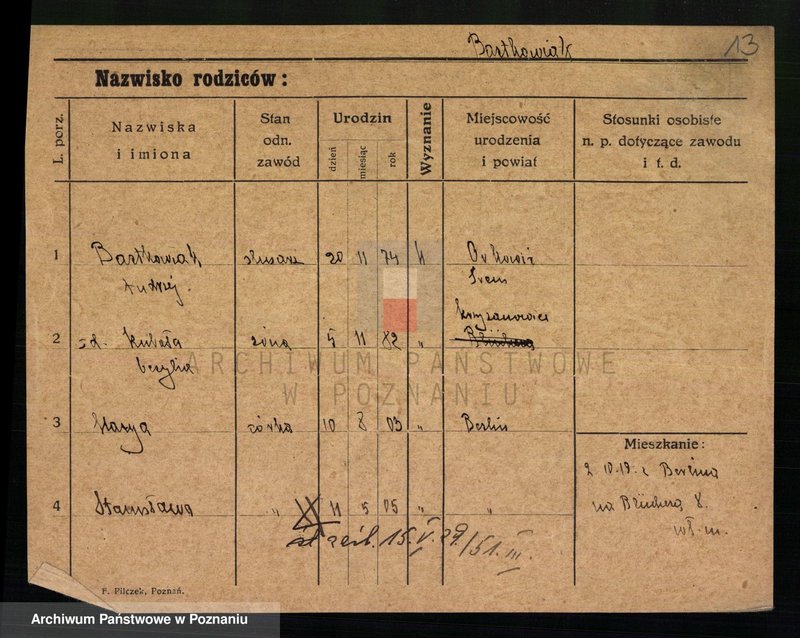 Bartkowiak 13
Nazwisko rodziców:
L. porz.
Nazwiska
i imiona
Stan
odn.
zawód
Urodzin
dzień
miesiąc
rok
Wyznanie
Miejscowość
urodzenia
i powiat
Stosunki osobiste
n. p. dotyczące zawodu
i t. d.
1 Bartkowiak 20 11 74
Andrzej
Krzyżanowice
2 z d. Kubala żona 5 11 82 "
Cecylia
3 Marya córka 10 8 03 " Berlin
Mieszkanie:
2 10.19. z Berlina
na Blüchera 8.
4 Stanisława " 11 5 05 " "
15. V. 29/51. III.
F. Pilczek, Poznań.
ARCHIWUM PAŃSTWOWE
W POZNANIU
Archiwum Państwowe w Poznaniu